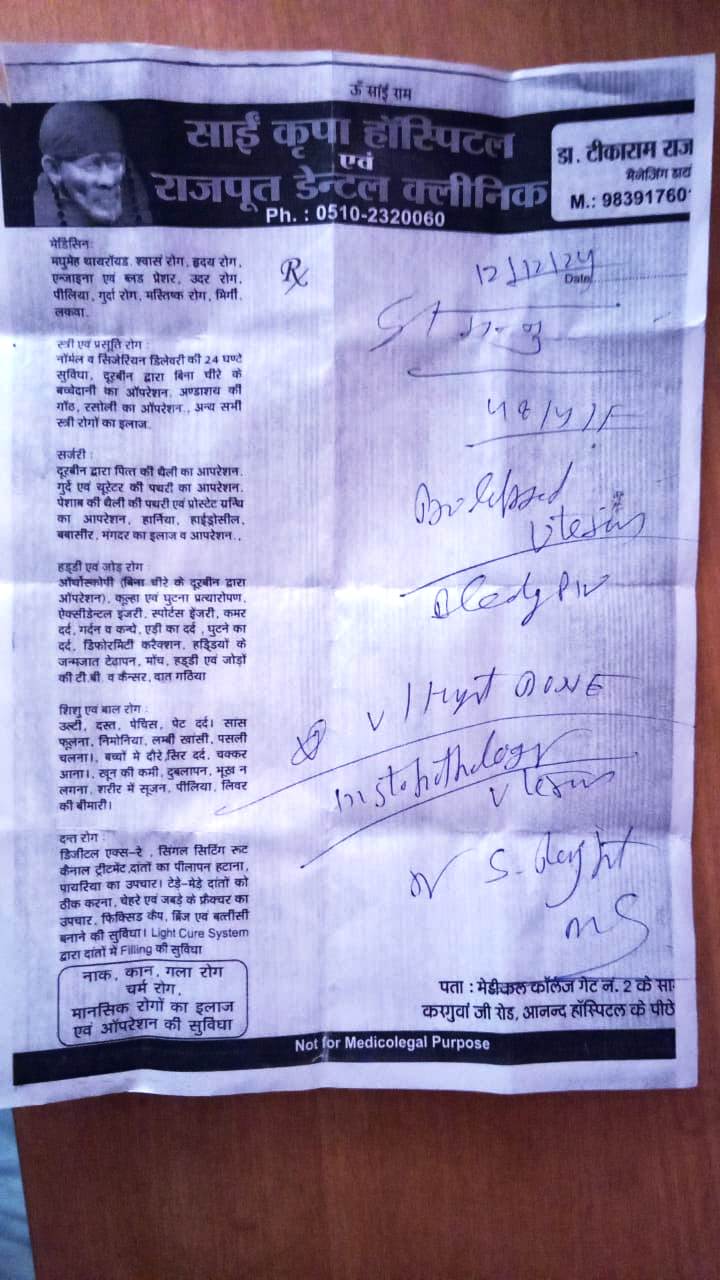 ऊँ सांई राम
साईं कृपा हॉस्पिटल
एवं
राजपूत डेन्टल क्लीनिक
Ph. : 0510-2320060
डा. टीकाराम राज
मैनेजिंग डाय
M.: 98391760
मेडिसिनः
मधुमेह थायरॉयड, श्वास रोग, हृदय रोग,
एन्जाइना एवं ब्लड प्रेशर, उदर रोग,
पीलिया, गुर्दा रोग, मस्तिष्क रोग, मिर्गी,
लकवा.
स्त्री एवं प्रसूति रोग :
नॉर्मल व सिजेरियन डिलेवरी की 24 घण्टे
सुविधा, दूरबीन द्वारा बिना चीरे के
बच्चेदानी का ऑपरेशन, अण्डाशय की
गाँठ, रसोली का ऑपरेशन., अन्य सभी
स्त्री रोगों का इलाज.
सर्जरी :
दूरबीन द्वारा पित्त की थैली का आपरेशन.
गुर्दे एवं यूरेटर की पथरी का आपरेशन.
पेशाब की थैली की पथरी एवं प्रोस्टेट ग्रन्थि
का आपरेशन, हार्निया, हाईड्रोसील,
बवासीर, भंगदर का इलाज व आपरेशन.,
हड्डी एवं जोड़ रोग :
ऑर्थोस्कोपी (बिना चीरे के दूरबीन द्वारा
ऑपरेशन), कूल्हा एवं घुटना प्रत्यारोपण,
ऐक्सीडेन्टल इंजरी, स्पोर्टस इंजरी, कमर
दर्द, गर्दन व कन्धे, एड़ी का दर्द, घुटने का
दर्द, डिफोरमिटी करैक्शन, हड्डियों के
जन्मजात टेढापन, मोंच, हड्डी एवं जोड़ों
की टी.बी. व कैन्सर, वात गठिया
शिशु एवं बाल रोग :
उल्टी, दस्त, पेचिस, पेट दर्द। सांस
फूलना, निमोनिया, लम्बी खांसी, पसली
चलना।, बच्चों मे दौरे, सिर दर्द, चक्कर
आना।, खून की कमी, दुबलापन, भूख न
लगना, शरीर में सूजन, पीलिया, लिवर
की बीमारी।
दन्त रोग :
डिजीटल एक्स-रे , सिंगल सिटिंग रूट
कैनाल ट्रीटमेंट, दांतों का पीलापन हटाना,
पायरिया का उपचार। टेड़े-मेड़े दांतों को
ठीक करना, चेहरे एवं जबड़े के फ्रैक्चर का
उपचार, फिक्सिड कैप, ब्रिज एवं बत्तीसी
बनाने की सुविधा। Light Cure System
द्वारा दांतों में Filling की सुविधा
नाक, कान, गला रोग
चर्म रोग,
मानसिक रोगों का इलाज
एवं ऑपरेशन की सुविधा
℞
12/12/24
Date
Uterus
DONE
Histopathology
Uterus
MS
पता : मेडीकल कॉलेज गेट नं. 2 के सा
करगुवां जी रोड, आनन्द हॉस्पिटल के पीछे
Not for Medicolegal Purpose